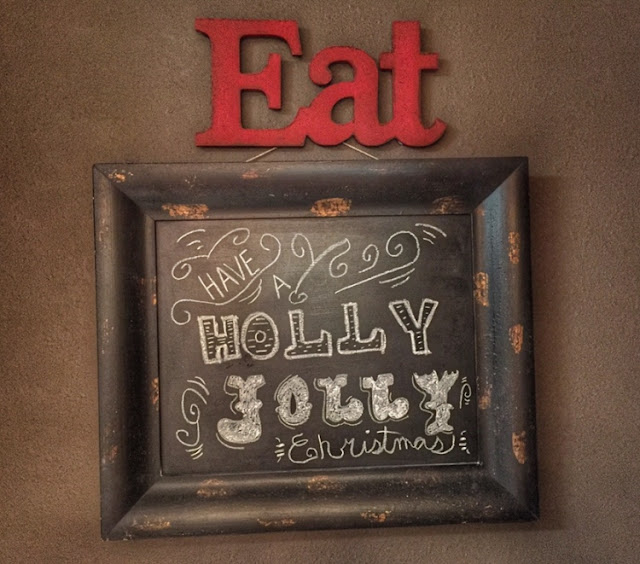 Eat
HAVE
A
HOLLY
JOLLY
Christmas